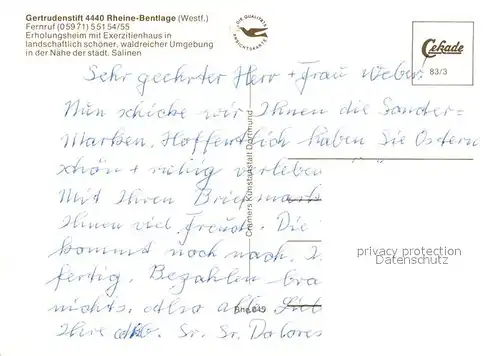 Gertrudenstift 4440 Rheine-Bentlage (Westf.)
Fernruf (05971) 55154/55
Erholungsheim mit Exerzitienhaus in
landschaftlich schöner, waldreicher Umgebung
in der Nähe der städt. Salinen
DIE QUALITÄTS
ANSICHTSKARTE
Cekade
83/3
Sehr geehrter Herr + Frau Weber!
Nun schicke wir Ihnen die Sonder=
Marken. Hoffentlich haben Sie Ostern
schön + ruhig verleben
Mit Ihren Briefmark
Ihnen viel Freude. Die
kommt noch nach.
fertig. Bezahlen bra
nichts. Also alles Lieb
Ihre Sr. Sr. Dolores
Cramers Kunstanstalt Dortmund
privacy protection
Datenschutz